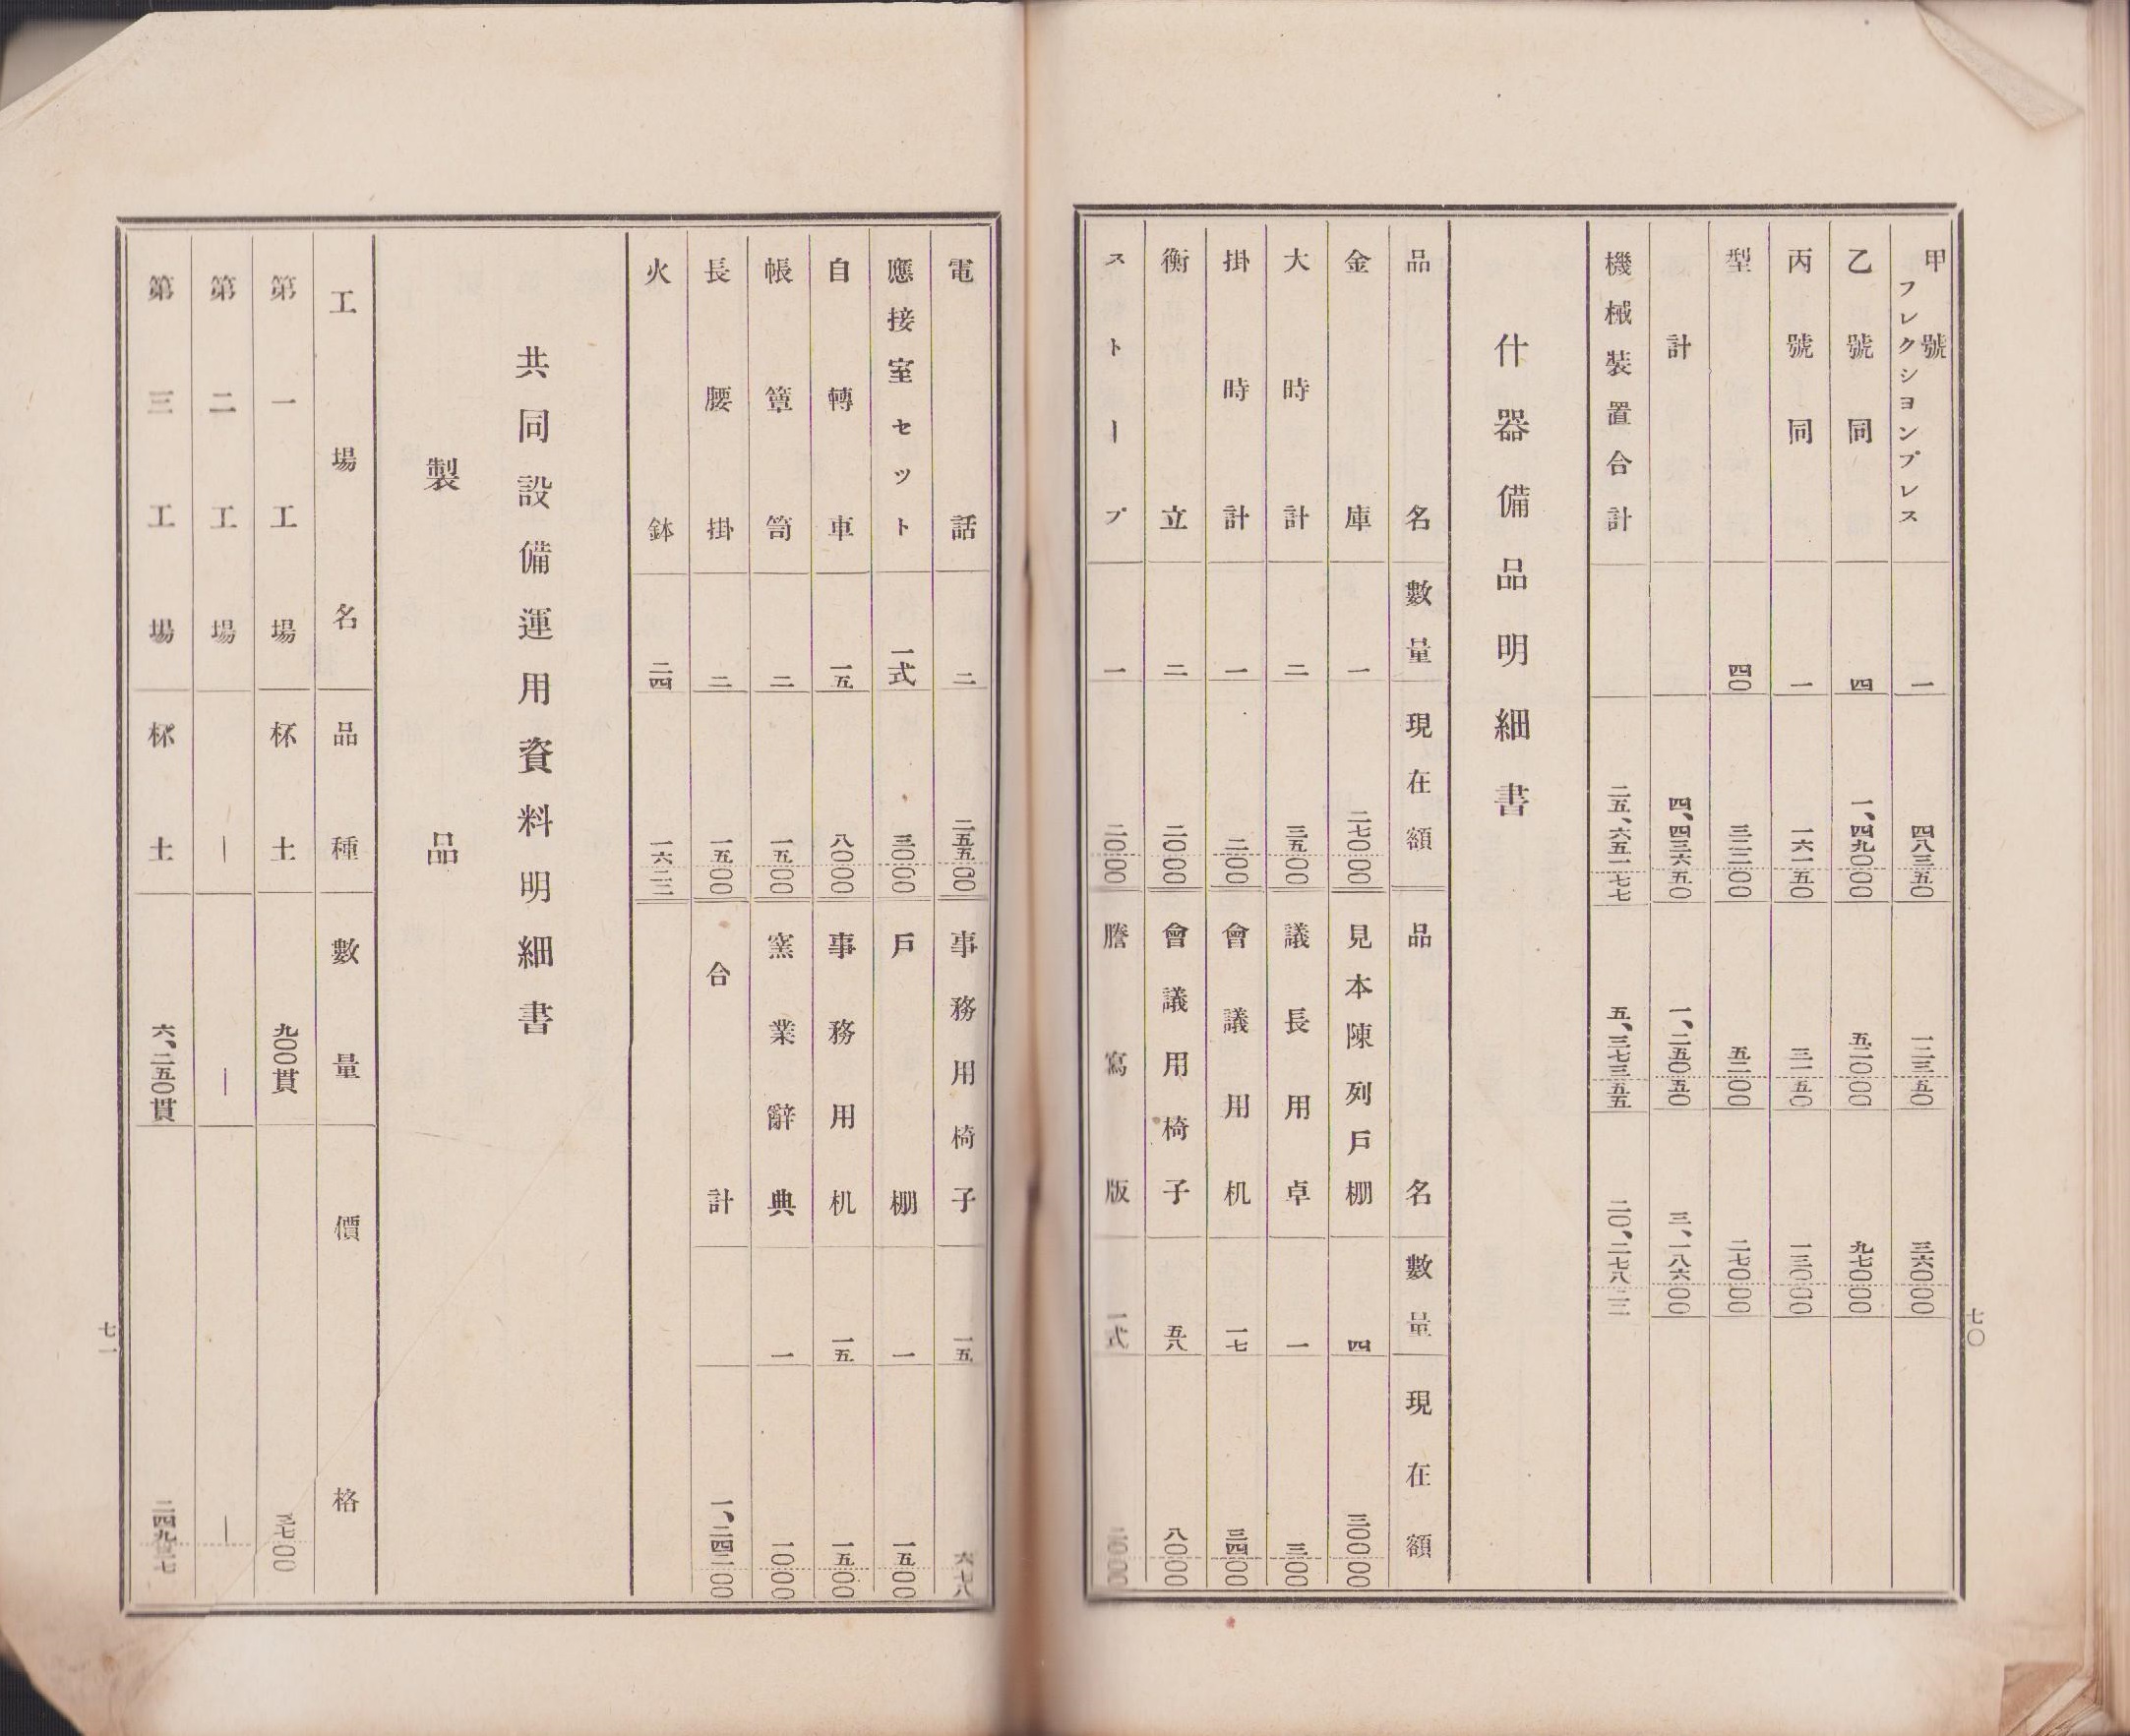 甲號フレクションプレス 一 四八三五〇 一二三五〇 三六〇〇〇
乙號同 四 一、四九〇〇〇 五二〇〇〇 九七〇〇〇
丙號同 一 一六一五〇 三一五〇 一三〇〇〇
型 四〇 三二二〇〇 五二〇〇 二七〇〇〇
計 四、四三六五〇 一、二五〇五〇 三、一八六〇〇
機械裝置合計 二五、六五一七七 五、三七三五五 二〇、二七八二二
什器備品明細書
品名 數量 現在額 品名 數量 現在額
金庫 一 二七〇〇〇 見本陳列戶棚 四 三〇〇〇〇
大時計 二 三五〇〇 議長用卓 一 三〇〇
掛時計 一 二〇〇 會議用机 一七 三四〇〇
衡立 二 二〇〇〇 會議用椅子 五八 八〇〇〇
ストーブ 一 二〇〇〇 謄寫版 一式
七〇
電話 二 二五五〇〇 事務用椅子 一五 六七八
應接室セット 一式 三〇〇〇 戶棚 一 一五〇〇
自轉車 一五 八〇〇〇 事務用机 一五 一五〇〇
帳簞笥 二 一五〇〇 窯業辭典 一 一〇〇〇
長腰掛 二 一五〇〇 合計 一、二四二〇〇
火鉢 二四 一六二二
共同設備運用資料明細書
製品
工場名 品種 數量 價格
第一工場 杯土 九〇〇貫 三七〇〇
第二工場 ― ― ―
第三工場 杯土 六、二五〇貫
七一